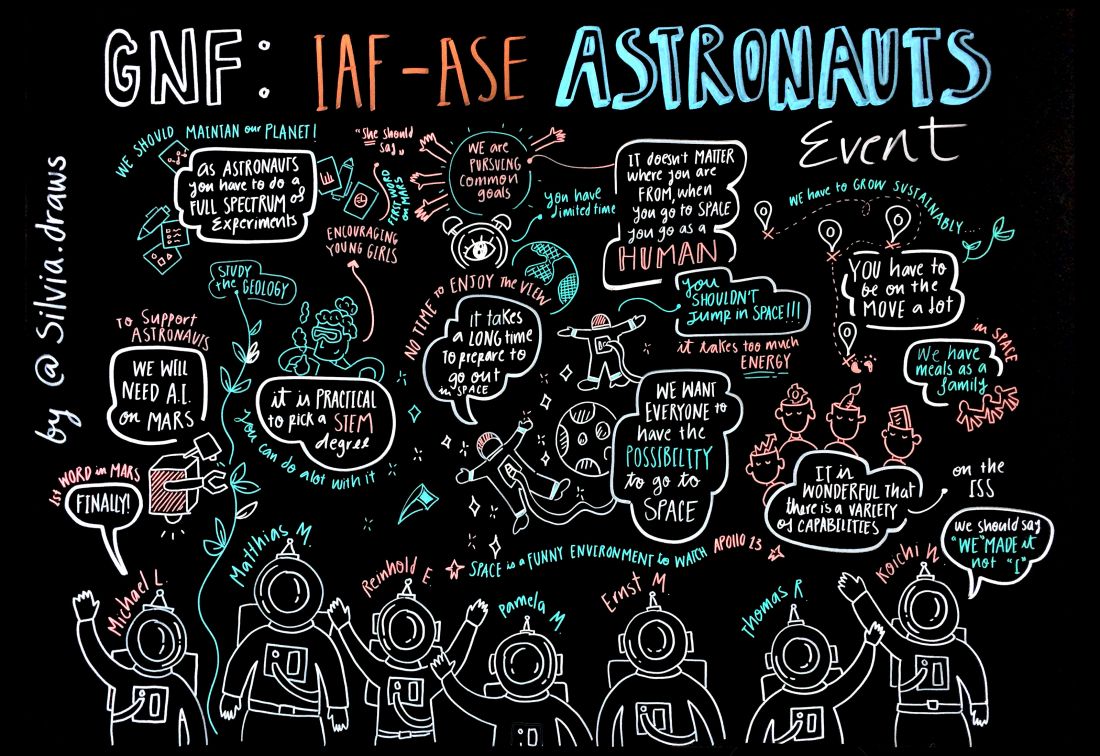 GNF: IAF-ASE ASTRONAUTS
Event
by @Silvia.draws
WE SHOULD MAINTAN our PLANET!
as ASTRONAUTS
you have to do a
FULL SPECTRUM of
Experiments
"She should
say"
FIRST WORD
on MARS
ENCOURAGING
YOUNG GIRLS
WE are
PURSUING
Common
goals
You have
limited time
IT doesn't MATTER
where you are
FROM, when
you go to SPACE
you go as a
HUMAN
WE HAVE to GROW SUSTAINABLY...
YOU have to
be on the
MOVE a lot
STUDY
the GEOLOGY
NO TIME to ENJOY the VIEW
it takes
a LONG time
to prepare to
go out
in SPACE
you
SHOULDN'T
jump in SPACE!!!
it takes too much
ENERGY
in SPACE
We have
meals as a
family
to Support
ASTRONAUTS
WE WILL
NEED A.I.
on MARS
it is PRACTICAL
to pick a STEM
degree
you can do alot with it
WE WANT
EVERYONE to
have the
POSSIBILITY
to go to
SPACE
IT is
WONDERFUL that
there is a VARIETY
of CAPABILITIES
on the
ISS
1st WORD in MARS
FINALLY!
we should say
"WE" MADE it
not "I"
SPACE is a FUNNY ENVIRONMENT to WATCH APOLLO 13
Michael L.
Matthias M.
Reinhold E.
Pamela M.
Ernst M.
Thomas R
Koichi W.